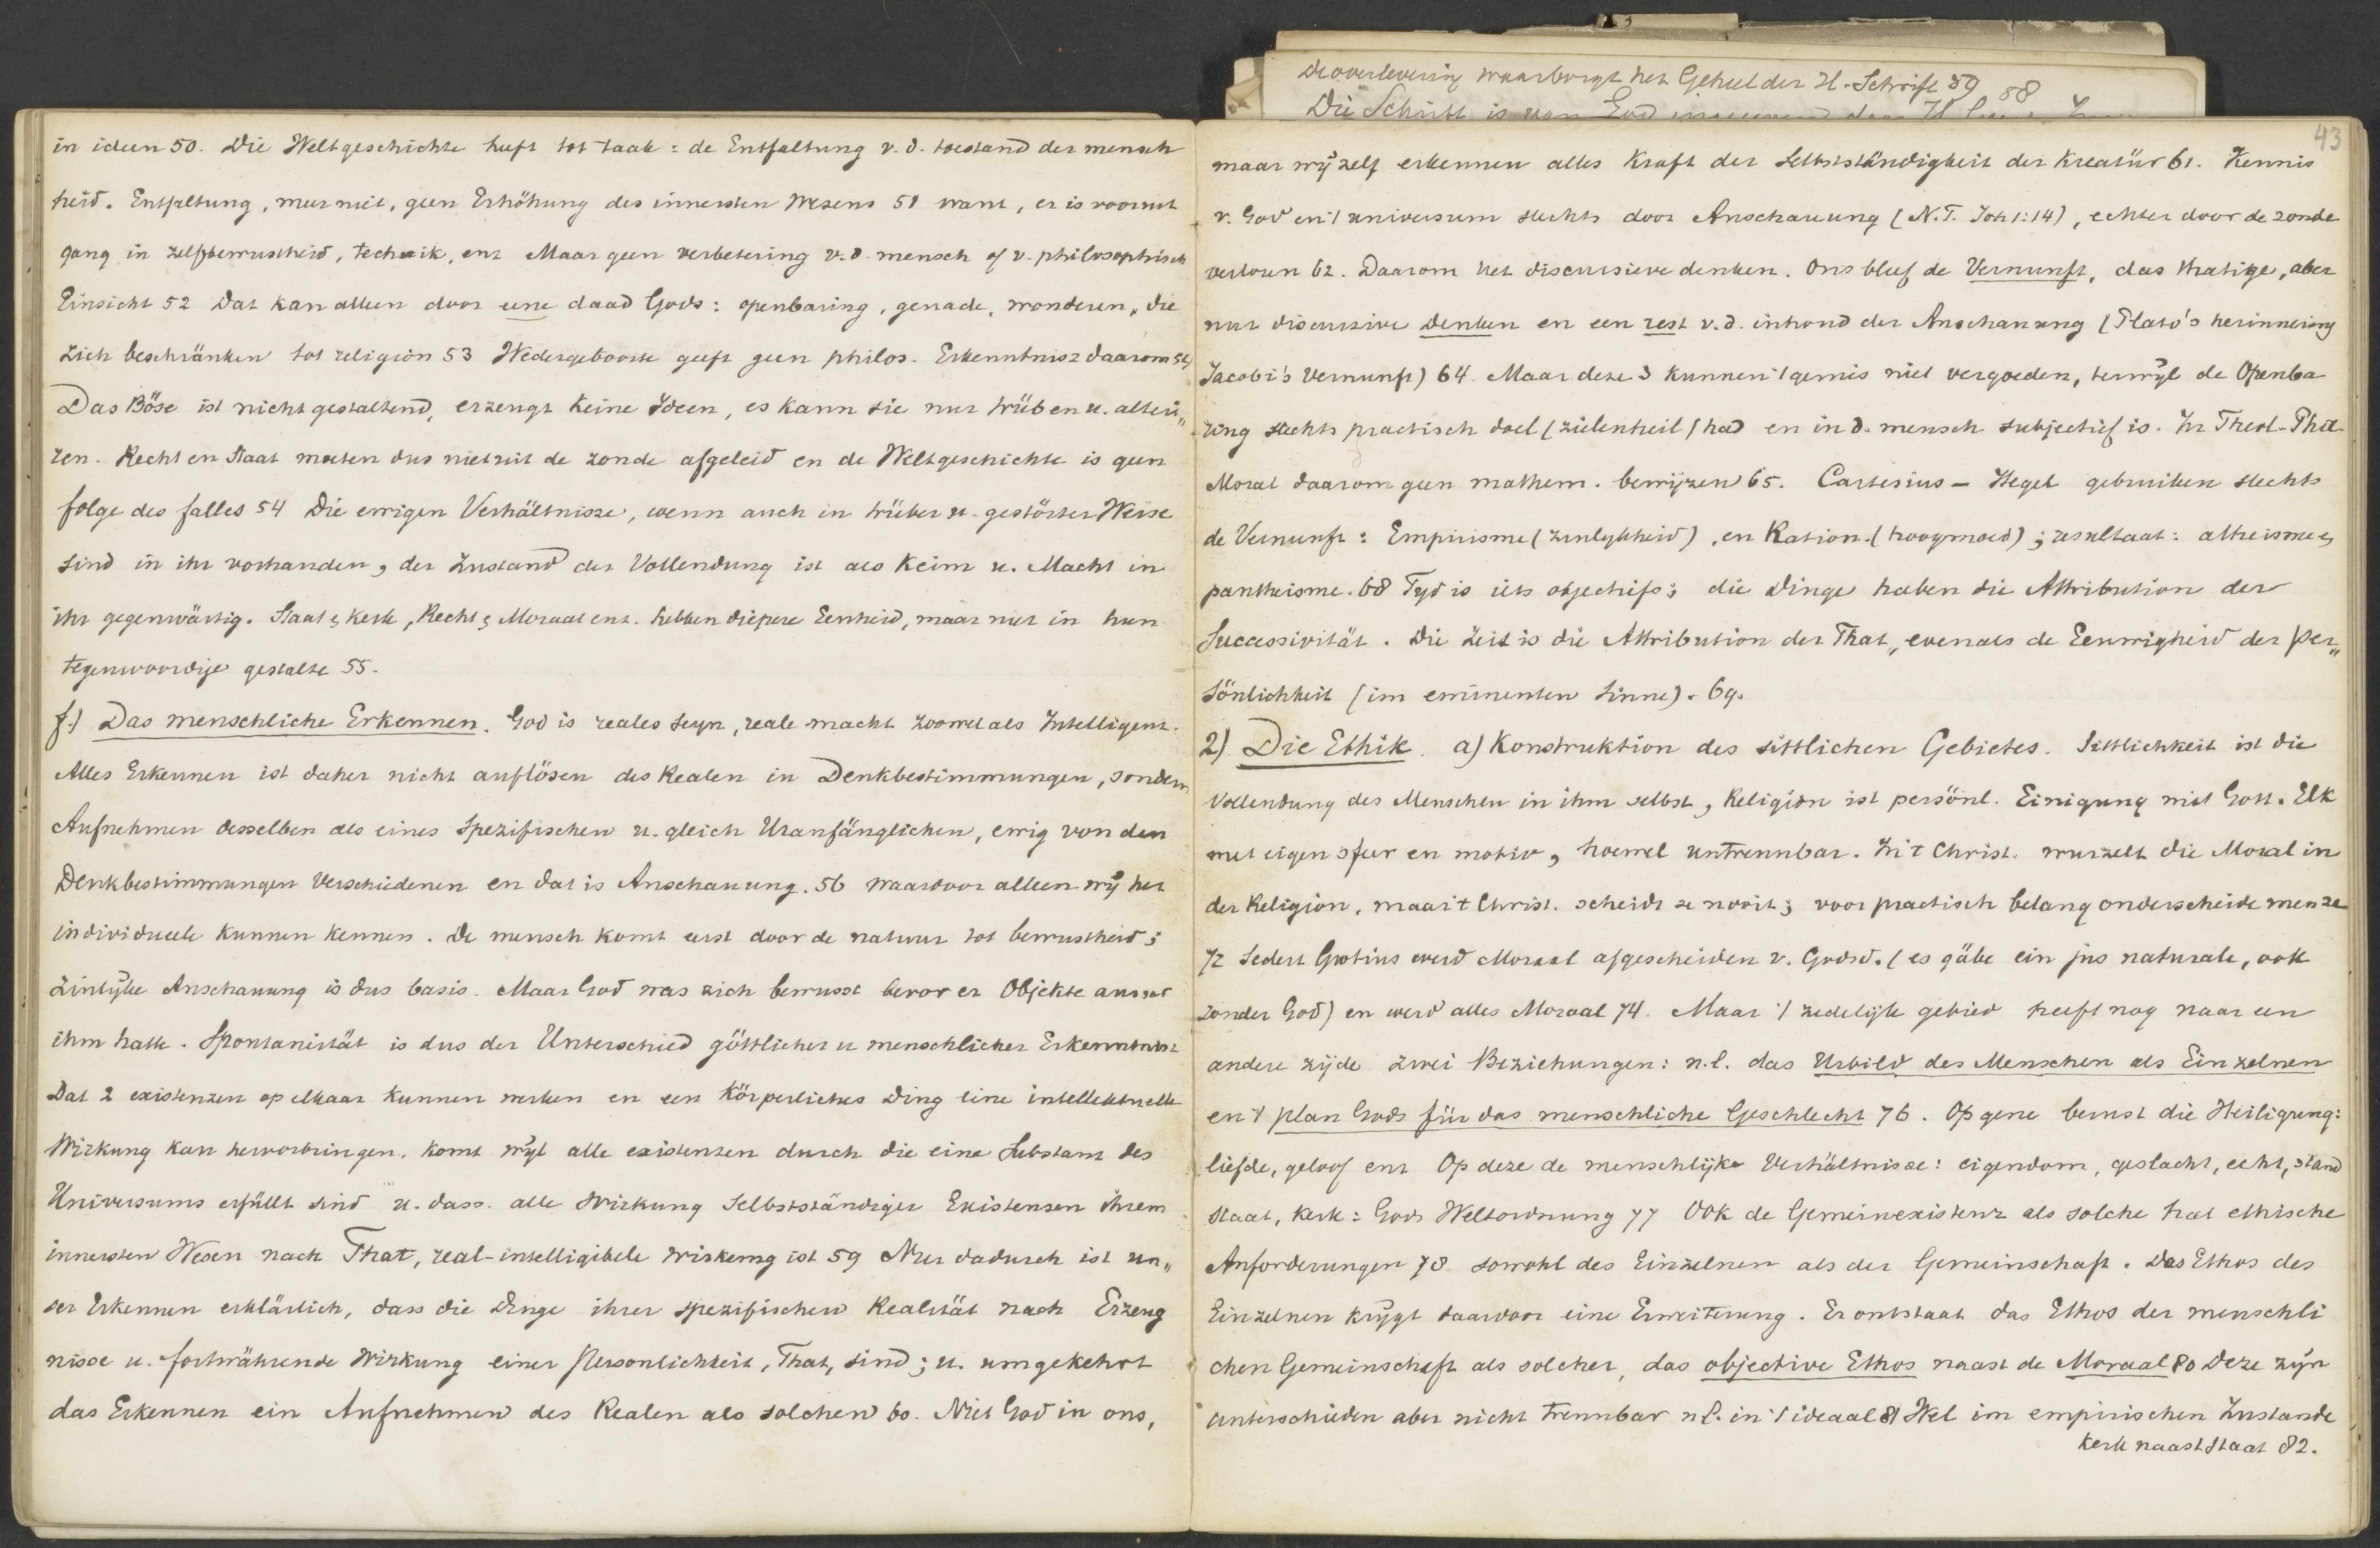 in ideen 50. Die Weltgeschichte heeft tot taak: de Entfaltung v. d. toestand der mensch
heid. Entfaltung, meer niet, geen Erhöhung des innersten Wesens 51 want, er is vooruit
gang in zelfbewustheid, techniek, enz Maar geen verbetering v. d. mensch of v. philosophisch
Einsicht 52 Dat kan alleen door eene daad Gods: openbaring, genade, wonderen, die
zich beschränken tot religion 53 Wedergeboorte geeft geen philos. Erkenntnisz daarom 54)
Das Böse ist nicht gestaltend, erzeugt keine Ideen, es kann sie nur trüben u. alteri„
ren. Recht en Staat moeten dus niet uit de zonde afgeleid en de Weltgeschichte is geen
folge des falles 54 Die ewigen Verhältnisse, wenn auch in trüber u. gestörter Weise
sind in ihr vorhanden, der Zustand der Vollendung ist als Keim u. Macht in
ihr gegenwärtig. Staat & kerk, Recht & Moraal enz. hebben diepere Eenheid, maar niet in hun
tegenwoordige gestalte 55.
f.) Das menschliche Erkennen. God is reales seyn, reale macht zoowel als Intelligenz.
Alles Erkennen ist daher nicht auflösen des Realen in Denkbestimmungen, sondern
Aufnehmen desselben als eines Spezifischen u. gleich Uranfänglichen, ewig von den
Denkbestimmungen Verschiedenen en dat is Anschauung. 56 waardoor alleen wij het
individueele kunnen kennen. De mensch komt eerst door de natuur tot bewustheid;
zinlijke Anschauung is dus basis. Maar God was zich bewusst bevor er Objekte ausser
ihm hatte. Spontanität is dus der Unterschied göttlicher u menschlicher Erkenntnisz
Dat 2 existenzen op elkaar kunnen werken en een Körperliches Ding eine intellektuelle
Wirkung kan hervorbringen, komt wijl alle existenzen durch die eine Substanz des
Universums erfüllt sind u. dass. alle Wirkung Selbstständiger Existenzen ihrem
innersten Wesen nach That, real-intelligibele wirkung ist 59 Nur dadurch ist un„
ser Erkennen erklärlich, dass die Dinge ihrer spezifischen Realität nach Erzeug
nisse u. fortwährende Wirkung einer Personlichkeit, That, sind; u. umgekehrt
das Erkennen ein Aufnehmen des Realen als solchen 60. Niet God in ons,
De overlevering waarborgt het Geheel der H. Schrift 59 88
Die Schrift is van God
43
maar wij zelf erkennen alles kraft der Selbstständigkeit der Kreatür 61. Kennis
v. God en 't universum slechts door Anschauung (N.T. Joh 1:14), echter door de zonde
verloren 62. Daarom het discursieve denken. Ons bleef de Vernunft, das thatige, aber
nur discursive Denken en een rest v. d. inhoud der Anschauung (Plato's herinnering
Jacobi's Vernunft) 64. Maar deze 3 kunnen 't gemis niet vergoeden, terwijl de Openba
ring slechts practisch doel (zielenheil) had en in d. mensch subjectief is. In Theol-Phil-
Moral daarom geen mathem. bewijzen 65. Cartesius - Hegel gebruiken slechts
de Vernunft: Empirisme (zinlykheid), en Ration. (hoogmoed); resultaat: atheisme &
pantheisme. 68 Tyd is iets objectiefs; die Dinge haben die Attribution der
Successivität. Die Zeit is die Attribution der That, evenals de Eeuwigheid der Per„
sönlichkeit (im eminenten Sinne). 69.
2) Die Ethik. a) Konstruktion des sittlichen Gebietes. Sittlichkeit ist die
Vollendung des Menschen in ihm selbst, Religion ist persönl. Einigung mit Gott. Elk
met eigen sfeer en motiv, hoewel untrennbar. In 't Christ. wurzelt die Moral in
der Religion, maar 't Christ. scheidt ze nooit; voor practisch belang onderscheide men ze
72 Sedert Grotius werd Moraal afgescheiden v. Godsd. (es gäbe ein jus naturale, ook
zonder God) en werd alles Moraal 74. Maar 't zedelijk gebied heeft nog naar een
andere zijde zwei Beziehungen: n.l. das Urbild des Menschen als Einzelnen
en 't plan Gods für das menschliche Geschlecht 76. Op gene berust die Heiligung:
liefde, geloof enz Op deze de menschlijke Verhältnisse: eigendom, geslacht, echt, stand
staat, kerk: Gods Weltordnung 77 Ook de Gemeinexistenz als solche hat ethische
Anforderungen 78 sowohl des Einzelnen als der Gemeinschaft. Das Ethos des
Einzelnen krijgt daardoor eine Erweiterung. Er ontstaat das Ethos der menschli
chen Gemeinschaft als solcher, das objective Ethos naast de Moraal 80 Deze zijn
unterschieden aber nicht trennbar nl. in 't ideaal 81 Wel im empirischen Zustande
kerk naast Staat 82.